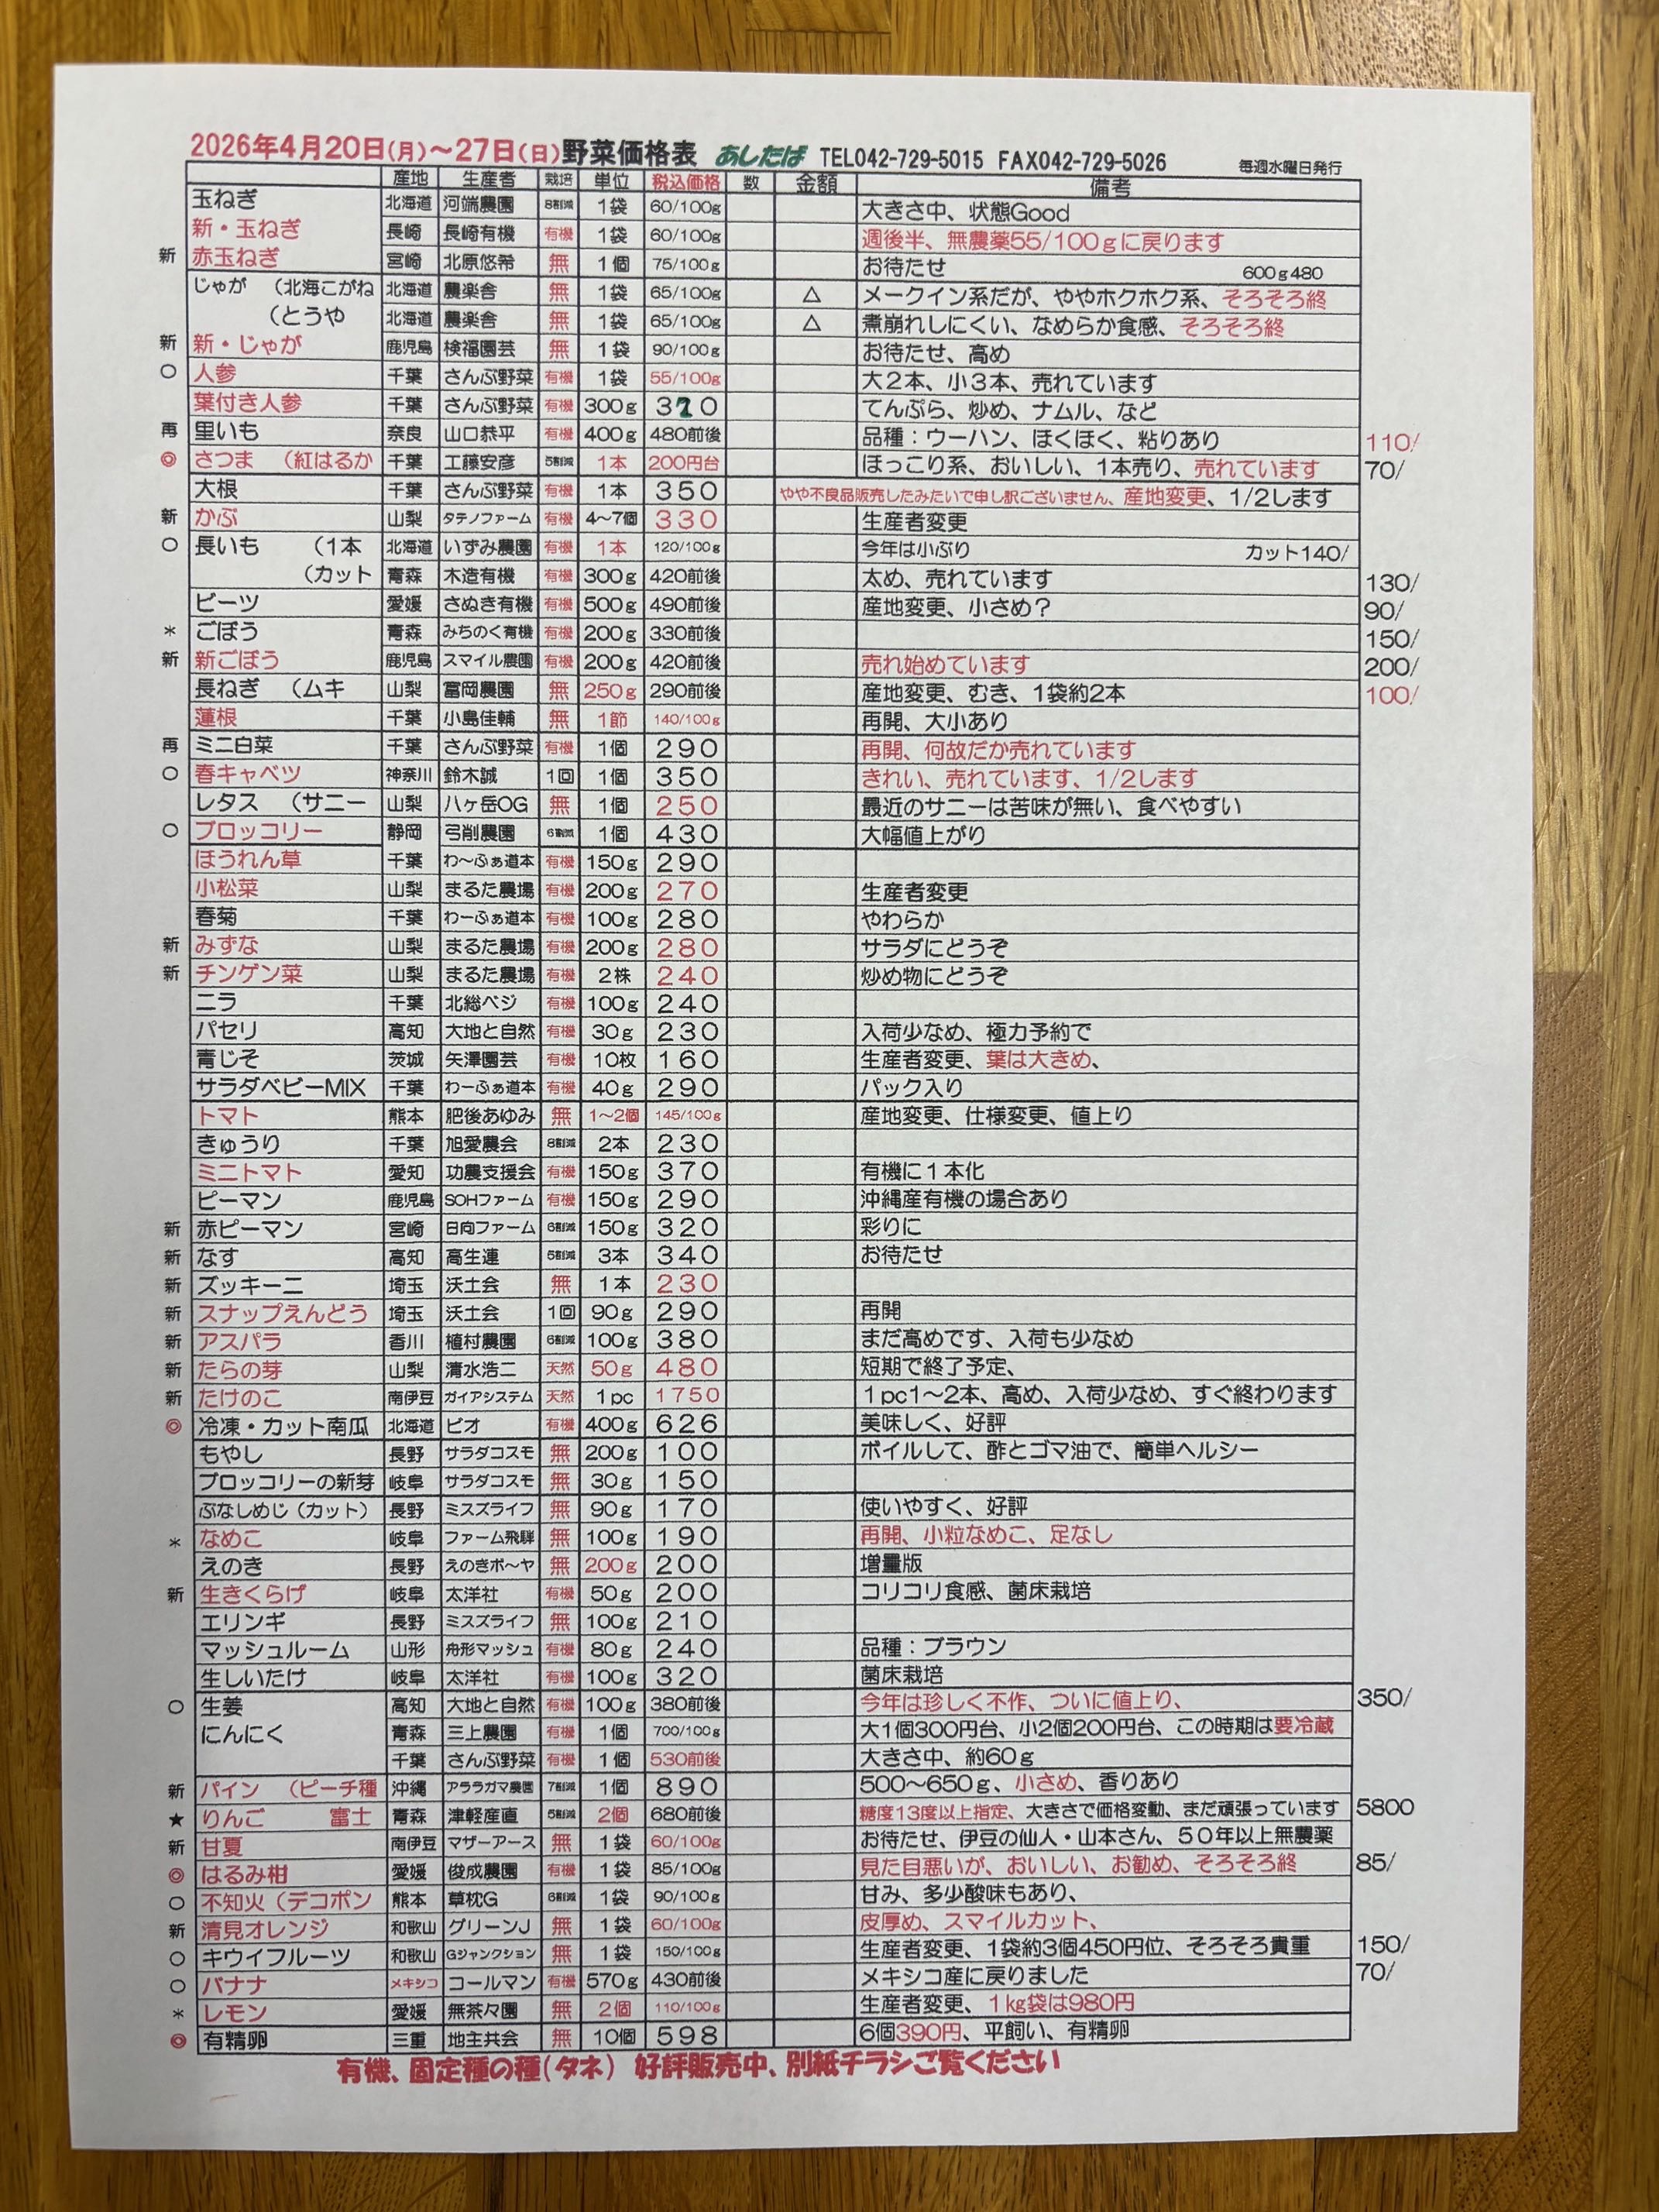 2026年4月20日(月)～27日(日)野菜価格表 あしたば TEL042-729-5015 FAX042-729-5026 毎週水曜日発行
産地 生産者 栽培 単位 税込価格 数 金額 備考
玉ねぎ 北海道 河端農園 8割減 1袋 60/100g 大きさ中、状態Good
新・玉ねぎ 長崎 長崎有機 有機 1袋 60/100g 週後半、無農薬55/100gに戻ります
新 赤玉ねぎ 宮崎 北原悠希 無 1個 75/100g お待たせ 600g480
じゃが (北海こがね 北海道 農楽舎 無 1袋 65/100g △ メークイン系だが、ややホクホク系、そろそろ終
(とうや 北海道 農楽舎 無 1袋 65/100g △ 煮崩れしにくい、なめらか食感、そろそろ終
新 新・じゃが 鹿児島 検福園芸 無 1袋 90/100g お待たせ、高め
○ 人参 千葉 さんぶ野菜 有機 1袋 55/100g 大2本、小3本、売れています
葉付き人参 千葉 さんぶ野菜 有機 300g てんぷら、炒め、ナムル、など
再 里いも 奈良 山口恭平 有機 400g 480前後 品種：ウーハン、ほくほく、粘りあり 110/
◎ さつま (紅はるか 千葉 工藤安彦 5割減 1本 200円台 ほっこり系、おいしい、1本売り、売れています 70/
大根 千葉 さんぶ野菜 有機 1本 350 やや不良品販売したみたいで申し訳ございません、産地変更、1/2します
新 かぶ 山梨 タテノファーム 有機 4～7個 330 生産者変更
○ 長いも (1本 北海道 いずみ農園 有機 1本 120/100g 今年は小ぶり カット140/
(カット 青森 木造有機 有機 300g 420前後 太め、売れています 130/
ビーツ 愛媛 さぬき有機 有機 500g 490前後 産地変更、小さめ？ 90/
* ごぼう 青森 みちのく有機 有機 200g 330前後 150/
新 新ごぼう 鹿児島 スマイル農園 有機 200g 420前後 売れ始めています 200/
長ねぎ (ムキ 山梨 富岡農園 無 250g 290前後 産地変更、むき、1袋約2本 100/
蓮根 千葉 小島佳輔 無 1節 140/100g 再開、大小あり
再 ミニ白菜 千葉 さんぶ野菜 有機 1個 290 再開、何故だか売れています
○ 春キャベツ 神奈川 鈴木誠 1回 1個 350 きれい、売れています、1/2します
レタス (サニー 山梨 八ヶ岳OG 無 1個 250 最近のサニーは苦味が無い、食べやすい
○ ブロッコリー 静岡 弓削農園 6割減 1個 430 大幅値上がり
ほうれん草 千葉 わ～ふぁ道本 有機 150g 290
小松菜 山梨 まるた農場 有機 200g 270 生産者変更
春菊 千葉 わーふぁ道本 有機 100g 280 やわらか
新 みずな 山梨 まるた農場 有機 200g 280 サラダにどうぞ
新 チンゲン菜 山梨 まるた農場 有機 2株 240 炒め物にどうぞ
ニラ 千葉 北総ベジ 有機 100g 240
パセリ 高知 大地と自然 有機 30g 230 入荷少なめ、極力予約で
青じそ 茨城 矢澤園芸 有機 10枚 160 生産者変更、葉は大きめ、
サラダベビーMIX 千葉 わーふぁ道本 有機 40g 290 パック入り
トマト 熊本 肥後あゆみ 無 1～2個 145/100g 産地変更、仕様変更、値上り
きゅうり 千葉 旭愛農会 8割減 2本 230
ミニトマト 愛知 功農支援会 有機 150g 370 有機に1本化
ピーマン 鹿児島 SOHファーム 有機 150g 290 沖縄産有機の場合あり
新 赤ピーマン 宮崎 日向ファーム 6割減 150g 320 彩りに
新 なす 高知 高生連 5割減 3本 340 お待たせ
新 ズッキーニ 埼玉 沃土会 無 1本 230
新 スナップえんどう 埼玉 沃土会 1回 90g 290 再開
新 アスパラ 香川 植村農園 6割減 100g 380 まだ高めです、入荷も少なめ
新 たらの芽 山梨 清水浩二 天然 50g 480 短期で終了予定、
新 たけのこ 南伊豆 ガイアシステム 天然 1pc 1750 1pc1～2本、高め、入荷少なめ、すぐ終わります
◎ 冷凍・カット南瓜 北海道 ビオ 有機 400g 626 美味しく、好評
もやし 長野 サラダコスモ 無 200g 100 ボイルして、酢とゴマ油で、簡単ヘルシー
ブロッコリーの新芽 岐阜 サラダコスモ 無 30g 150
ぶなしめじ(カット) 長野 ミスズライフ 無 90g 170 使いやすく、好評
* なめこ 岐阜 ファーム飛騨 無 100g 190 再開、小粒なめこ、足なし
えのき 長野 えのきボ～ヤ 無 200g 200 増量版
新 生きくらげ 岐阜 太洋社 有機 50g 200 コリコリ食感、菌床栽培
エリンギ 長野 ミスズライフ 無 100g 210
マッシュルーム 山形 舟形マッシュ 有機 80g 240 品種：ブラウン
生しいたけ 岐阜 太洋社 有機 100g 320 菌床栽培
○ 生姜 高知 大地と自然 有機 100g 380前後 今年は珍しく不作、ついに値上り、 350/
にんにく 青森 三上農園 有機 1個 700/100g 大1個300円台、小2個200円台、この時期は要冷蔵
千葉 さんぶ野菜 有機 1個 530前後 大きさ中、約60g
新 パイン (ピーチ種 沖縄 アララガマ農園 7割減 1個 890 500～650g、小さめ、香りあり
★ りんご 富士 青森 津軽産直 5割減 2個 680前後 糖度13度以上指定、大きさで価格変動、まだ頑張っています 5800
新 甘夏 南伊豆 マザーアース 無 1袋 60/100g お待たせ、伊豆の仙人・山本さん、50年以上無農薬
◎ はるみ柑 愛媛 俊成農園 有機 1袋 85/100g 見た目悪いが、おいしい、お勧め、そろそろ終 85/
○ 不知火(デコポン 熊本 草枕G 6割減 1袋 90/100g 甘み、多少酸味もあり、
新 清見オレンジ 和歌山 グリーンJ 無 1袋 60/100g 皮厚め、スマイルカット、
○ キウイフルーツ 和歌山 Gジャンクション 無 1袋 150/100g 生産者変更、1袋約3個450円位、そろそろ貴重 150/
○ バナナ メキシコ コールマン 有機 570g 430前後 メキシコ産に戻りました 70/
* レモン 愛媛 無茶々園 無 2個 110/100g 生産者変更、1kg袋は980円
◎ 有精卵 三重 地主共会 無 10個 598 6個390円、平飼い、有精卵
有機、固定種の種(タネ) 好評販売中、別紙チラシご覧ください